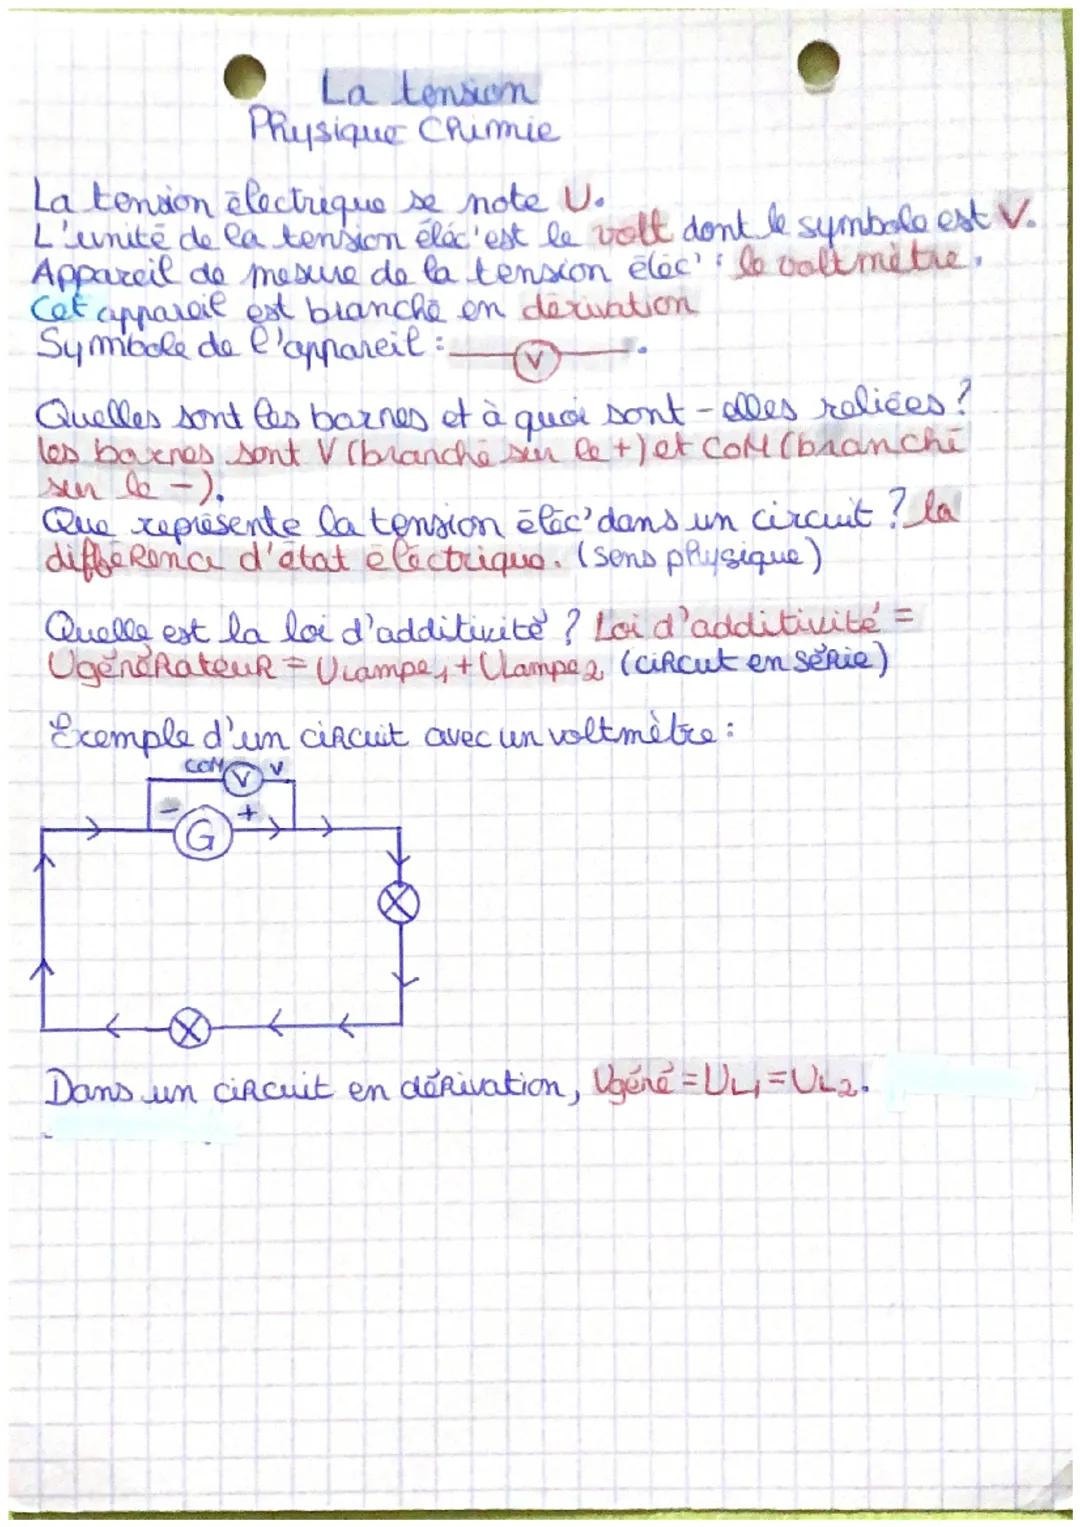 La tension
Physique Chimie
La tension électrique se note U.
L'unité de la tension éléc'est le volt dont le symbole est V.
Appareil de mesure de la tension éléc' : le voltmètre.
Cet appareil est branché en dérivation
Symbole de l'appareil : V .
Quelles sont les bornes et à quoi sont-elles reliées ?
les bornes sont V (branché sur le +) et COM (branché
sur le -).
Que représente la tension éléc' dans un circuit ? la
différence d'état électrique. (sens physique)
Quelle est la loi d'additivité ? Loi d'additivité =
Ugénérateur = Ulampe1 + Ulampe2 (circut en série)
Exemple d'un circuit avec un voltmètre :
COM V V
- G +
Dans un circuit en dérivation, Ugéné = UL1 = UL2.